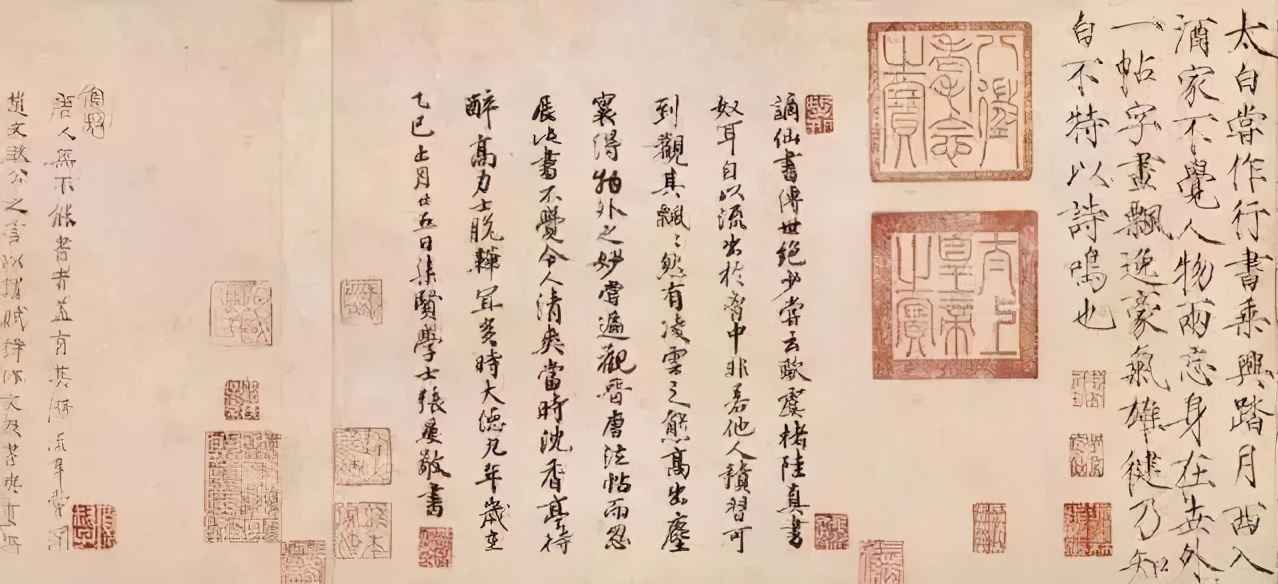 太白嘗作行書乘興踏月西入
酒家不覺人物兩忘身在世外
一帖字畫飄逸豪氣雄健乃知
白不特以詩鳴也
八徵耄念之寶
太上皇帝之寶
謫仙書傳世絕少嘗云歐虞褚陸真書
奴耳自以流出於胷中非若他人積習可
到觀其飄〻然有凌雲之態高出塵
寰得物外之妙嘗遍觀晉唐法帖而忽
展此書不覺令人清爽當時沈香亭待
醉高力士脫鞾宜矣時大德九年歲在
乙巳上月廿五日集賢學士張晏敬書
唐人無不能書者蓋有其源
趙文敏公之言以